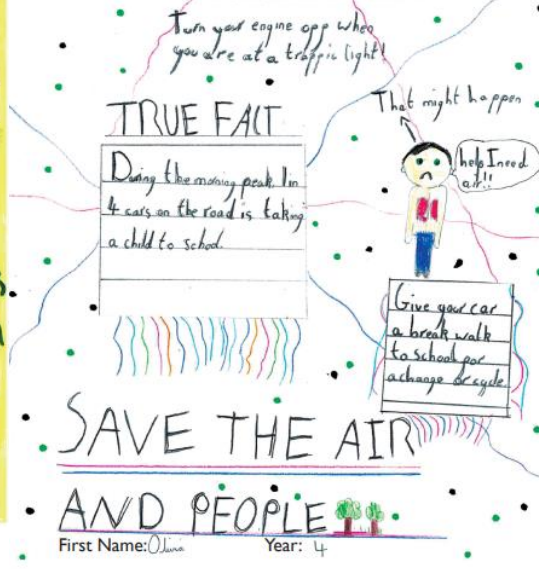 Turn your engine opp when
you are at a trappic light!
TRUE FACT
During the morning peak 1 in
4 cars on the road is taking
a child to school.
That might happen
help I need
air!!
Give your car
a break walk
to school por
a change or cycle.
SAVE THE AIR
AND PEOPLE
First Name: Olivia Year: 4